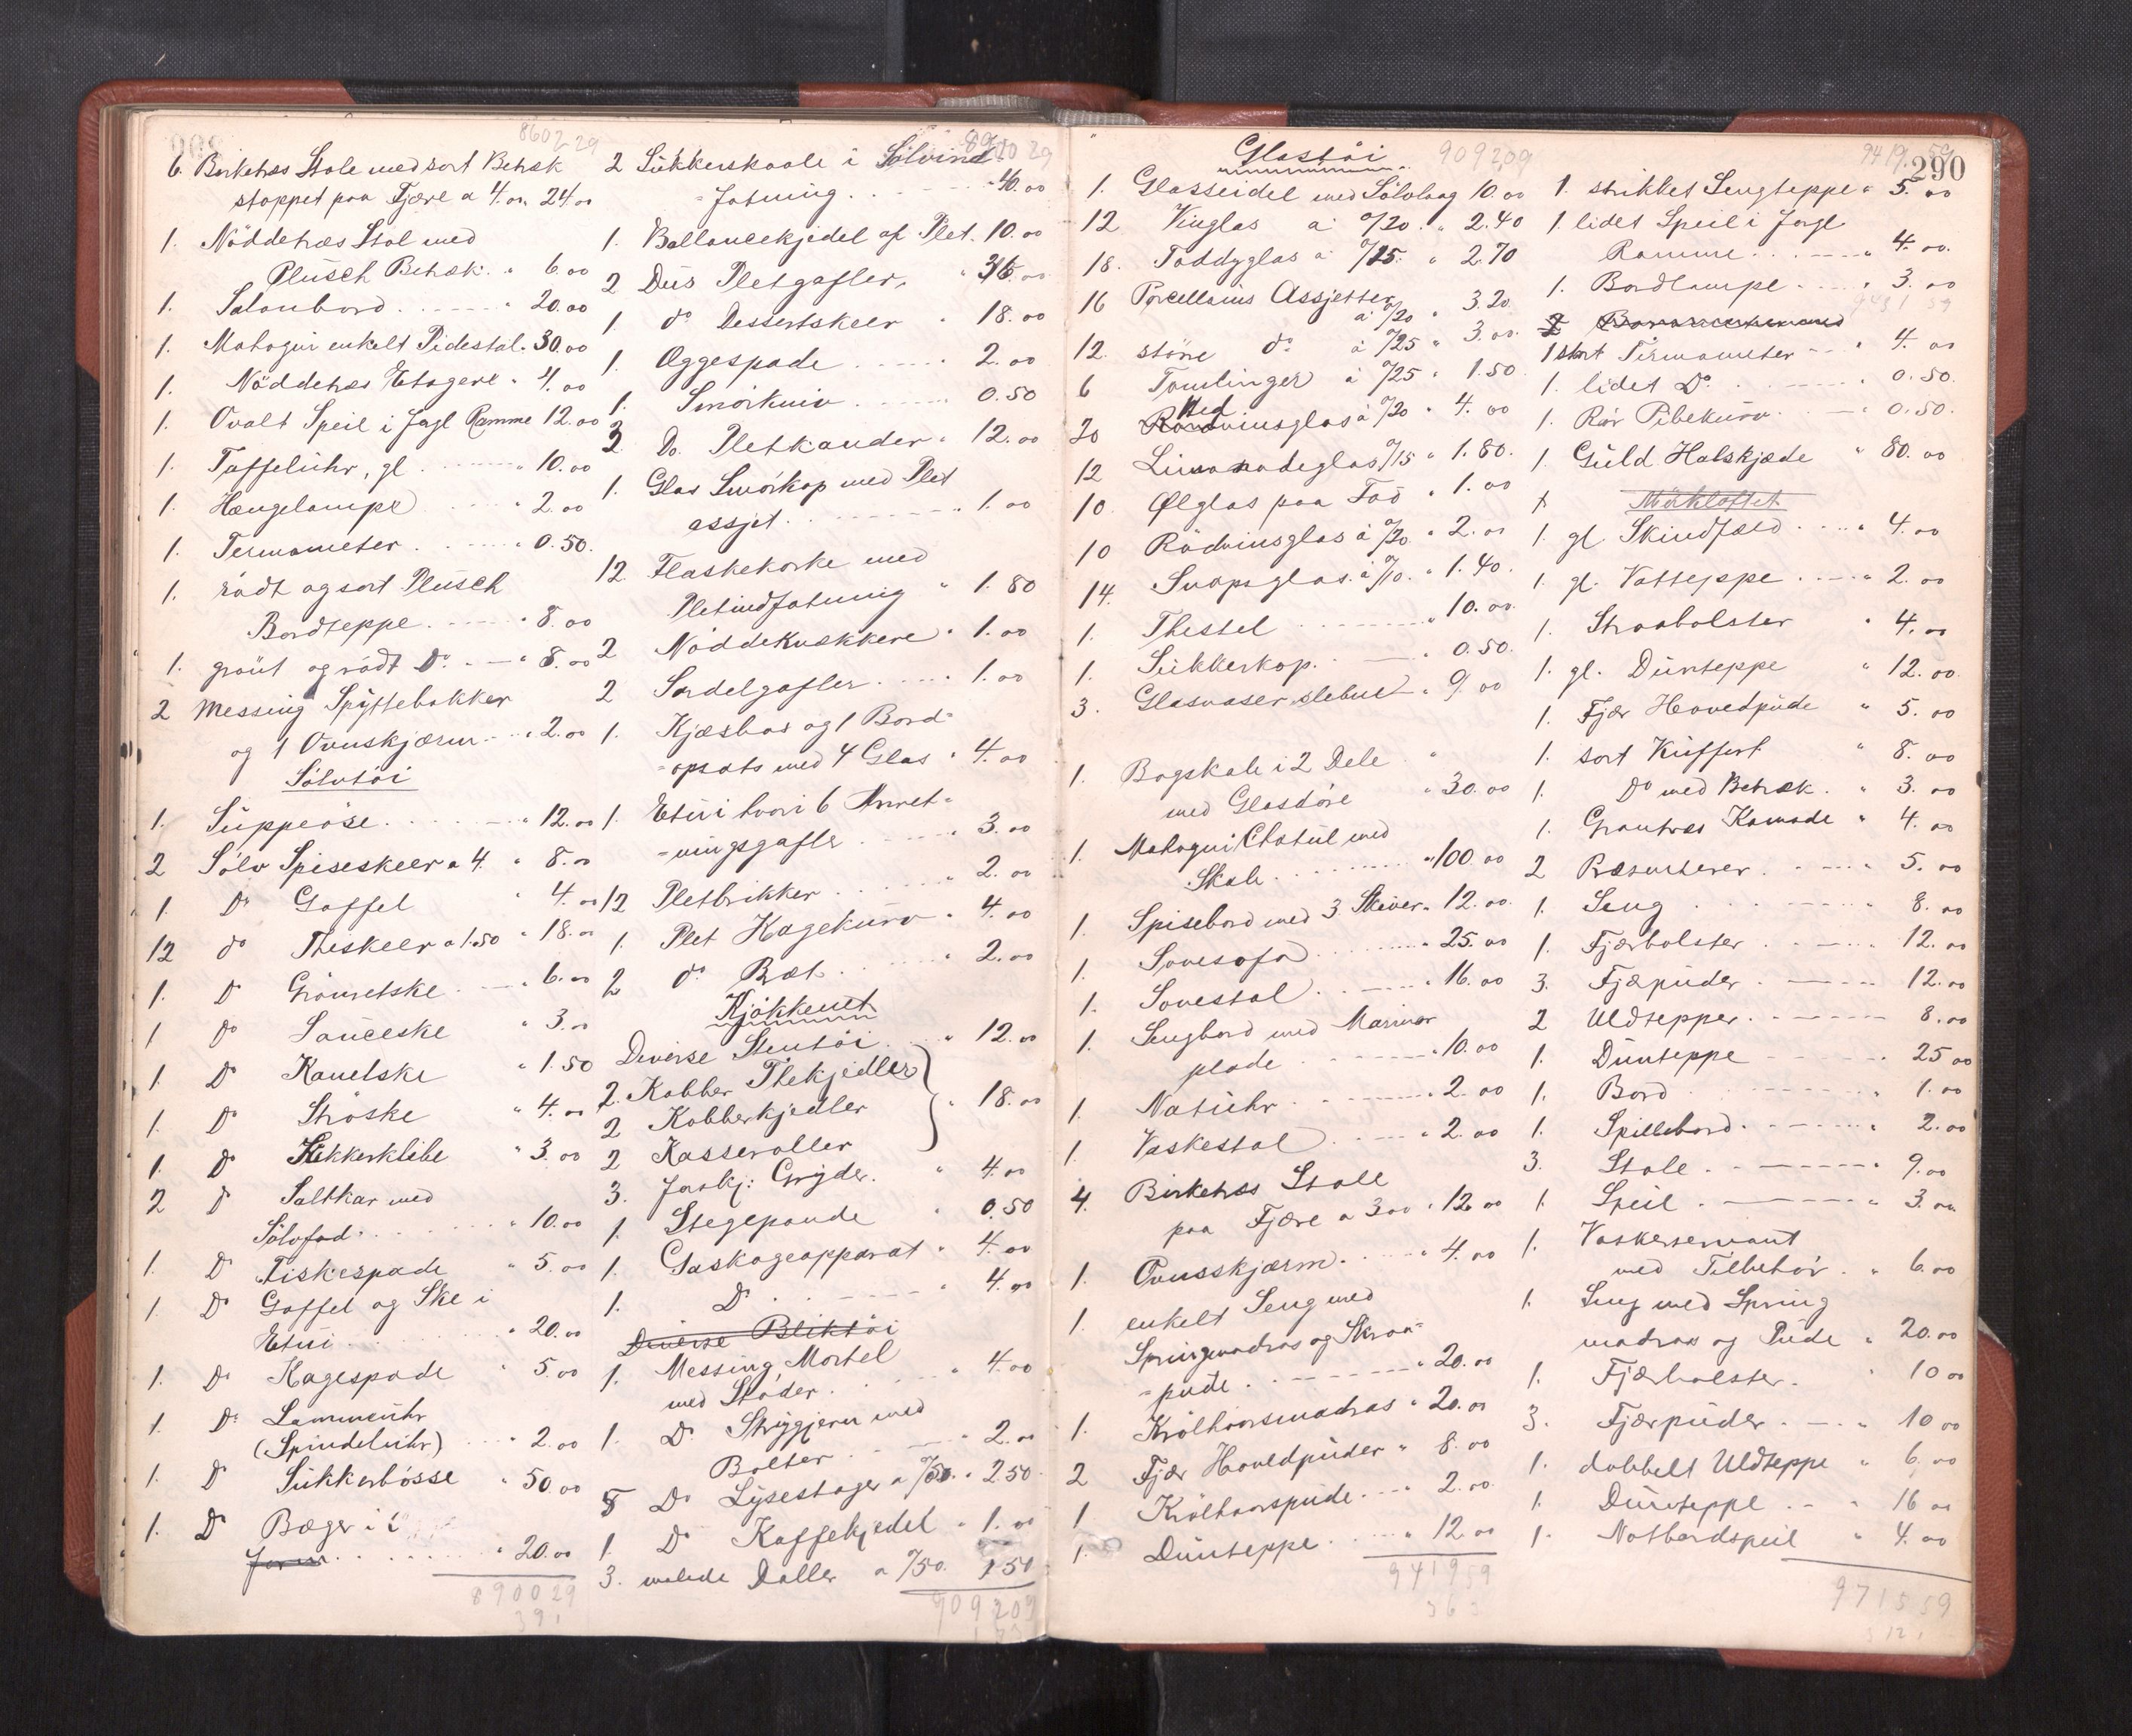 8602 29
6. Birketræs Stole med sort Betræk
stoppet paa Fjære a 4.00 24.00
1. Nöddetræs Stol med
Plüsch Betræk. " 6.00
1. Salonbord " 20.00
1. Mahogni enkelt Pidestal. 30.00
1. Nöddetræs Etagere " 4.00
1. Ovalt Speil i Jagl Ramme 12.00
1. Taffeluhr, gl. " 10.00
1. Hængelampe " 2.00
1. Termometer " 0.50.
1. rödt og sort Plüsch
Bordteppe " 8.00
1. grönt og rödt Do. " 8.00
2 Messing Spyttebakker
og 1 Ovnskjærm " 2.00
Sölvtöi
1. Suppeöse " 12.00
2 Sölv Spiseskeer a 4. " 8.00
1. Do Gaffel " 4.00
12 do Theskeer a 1.50 " 18.00
1. Do Grönretske " 6.00
1 Do Sauceske " 3.00
1. Do Kanelske " 1.50
1. Do Ströske " 4.00
1. Do Sukkerklibe " 3.00
2 Do Saltkar med
Sölvfad " 10.00
1. Do Fiskespade " 5.00
1. Do Gaffel og Ske i
Etui " 20.00
1. Do Kagespade " 5.00
1. Do Lommeuhr
(Spindeluhr) " 2.00
1. Do Sukkerbösse " 50.00
1. Do Bæger i
" 20.00
8900 29
8910 29
2 Sukkerskaale i Sölvind-
-fatning " 40.00
1. Ballancekjedel af Plet. 10.00
2 Dus Pletgafler " 36.00
1. do Dessertskeer " 18.00
1. Æggespade " 2.00
1. Smörkniv 0.50
2 Do. Pletkander " 12.00
1. Glas Smörkop med Plet
assjet " 1.00
12 Flaskekorke med
Pletindfatning " 1.80
2 Nöddeknækkere " 1.00
2 Sardelgafler 1.00
1. Kjæsbar og 1 Bord-
-opsats med 4 Glas " 4.00
1. Etui hvori 6 Anret-
-ningsgafle 3.00
12 Pletbrikker " 2.00
1. Plet Kagekurv " 4.00
2 do Bæt " 2.00
Kjökkenet
Diverse Stentöi " 12.00
2. Kobber Thekjedler
2 Kobberkjedler " 18.00
2 Kasseroller
3. forskj: Gryder. " 4.00
1. Stegepande " 0.50
1. Gaskogeapparat " 4.00
1. Do " 4.00
Diverse Bliktöi
1. Messing Mortel
med Stöder " 4.00
1. Do Strygjern med
Bolter " 2.00
5 Do Lysestager a o/50. " 2.50
1 Do Kaffekjedel " 1.00
3. malede Daller a o/50. 1.50
9092 09
290
Glastöi
9092,09
1. Glasseidel med Sölvlaag 10.00
12 Vinglas a o/20 " 2.40
18. Toddyglas a o/15. " 2.70
16 Porcellains Assjetter
a o/20 " 3.20.
12. större do a o/25 " 3.00.
6 Tomlinger a o/25 " 1.50
20 Hedvinsglas a o/20 " 4.00
12 Limonadeglas o/15 " 1.80.
10. Ølglas paa Fod " 1.00
10 Rödvinsglas a o/20. " 2.00
14. Snapsglas a o/10. " 1.40.
1. Thestel " 10.00.
1. Sukkerkop. " 0.50.
3. Glasvaser slebne " 9.00
1. Bogskab i 2 Dele
med Glasdöre " 30.00
1. Mahogni Chatul med
Skab " 100.00
1. Spisebord med 3 Skiver " 12.00.
1. Sovesofa 25.00
1. Sovestol " 16.00
1. Sengbord med Marmor
plade " 10.00
1. Natuhr " 2.00
1. Vaskestol " 2.00
4. Birketræs Stole
paa Fjære a 3.00 " 12.00
1. Ovnsskjærm " 4.00
1. enkelt Seng med
Springmadras og Skraa-
-pude " 20.00
1. Krölhaarsmadras " 20.00
2 Fjær Hovedpuder " 8.00
1 Krölhaarspude " 2.00.
1. Dunteppe " 12.00
9419 59
9419 59
1. strikket Sengteppe " 5.00
1. lidet Speil i Jagl
Ramme " 4.00.
1. Bordlampe " 3.00
9431 59
1 stort Tirmometer " 4.00
1. lidet Do. " 0.50.
1. Rör Pibekurv 0.50.
1. Guld Halskjæde " 80.00
Mörkloftet
1. gl. Skindfæld " 4.00
1. gl. Vatteppe " 2.00
1. Straabolster " 4.00
1. gl. Dunteppe " 12.00.
1. Fjær Hovedpude " 5.00
1. sort Kuffert " 8.00
1. Do med Betræk. " 3.00
1. Grantræs Komode " 4.00
2 Præsenterer " 5.00
1. Seng 8.00
1. Fjærbolster " 12.00
3. Fjæpuder 12.00
2 Uldtepper 8.00
1. Dunteppe 25.00
1. Bord " 1.00
1. Spillebord " 2.00
3. Stole " 9.00
1. Speil " 3.00
1. Vaskerservant
med Tilbehör " 6.00
1. Seng med Spring
madras og Pude " 20.00
1. Fjærbolster. " 10.00
3. Fjærpuder " 10.00
1. dobbelt Uldteppe " 6.00
1. Dunteppe " 16.00
1. Natbordspeil " 4.00
9715 59